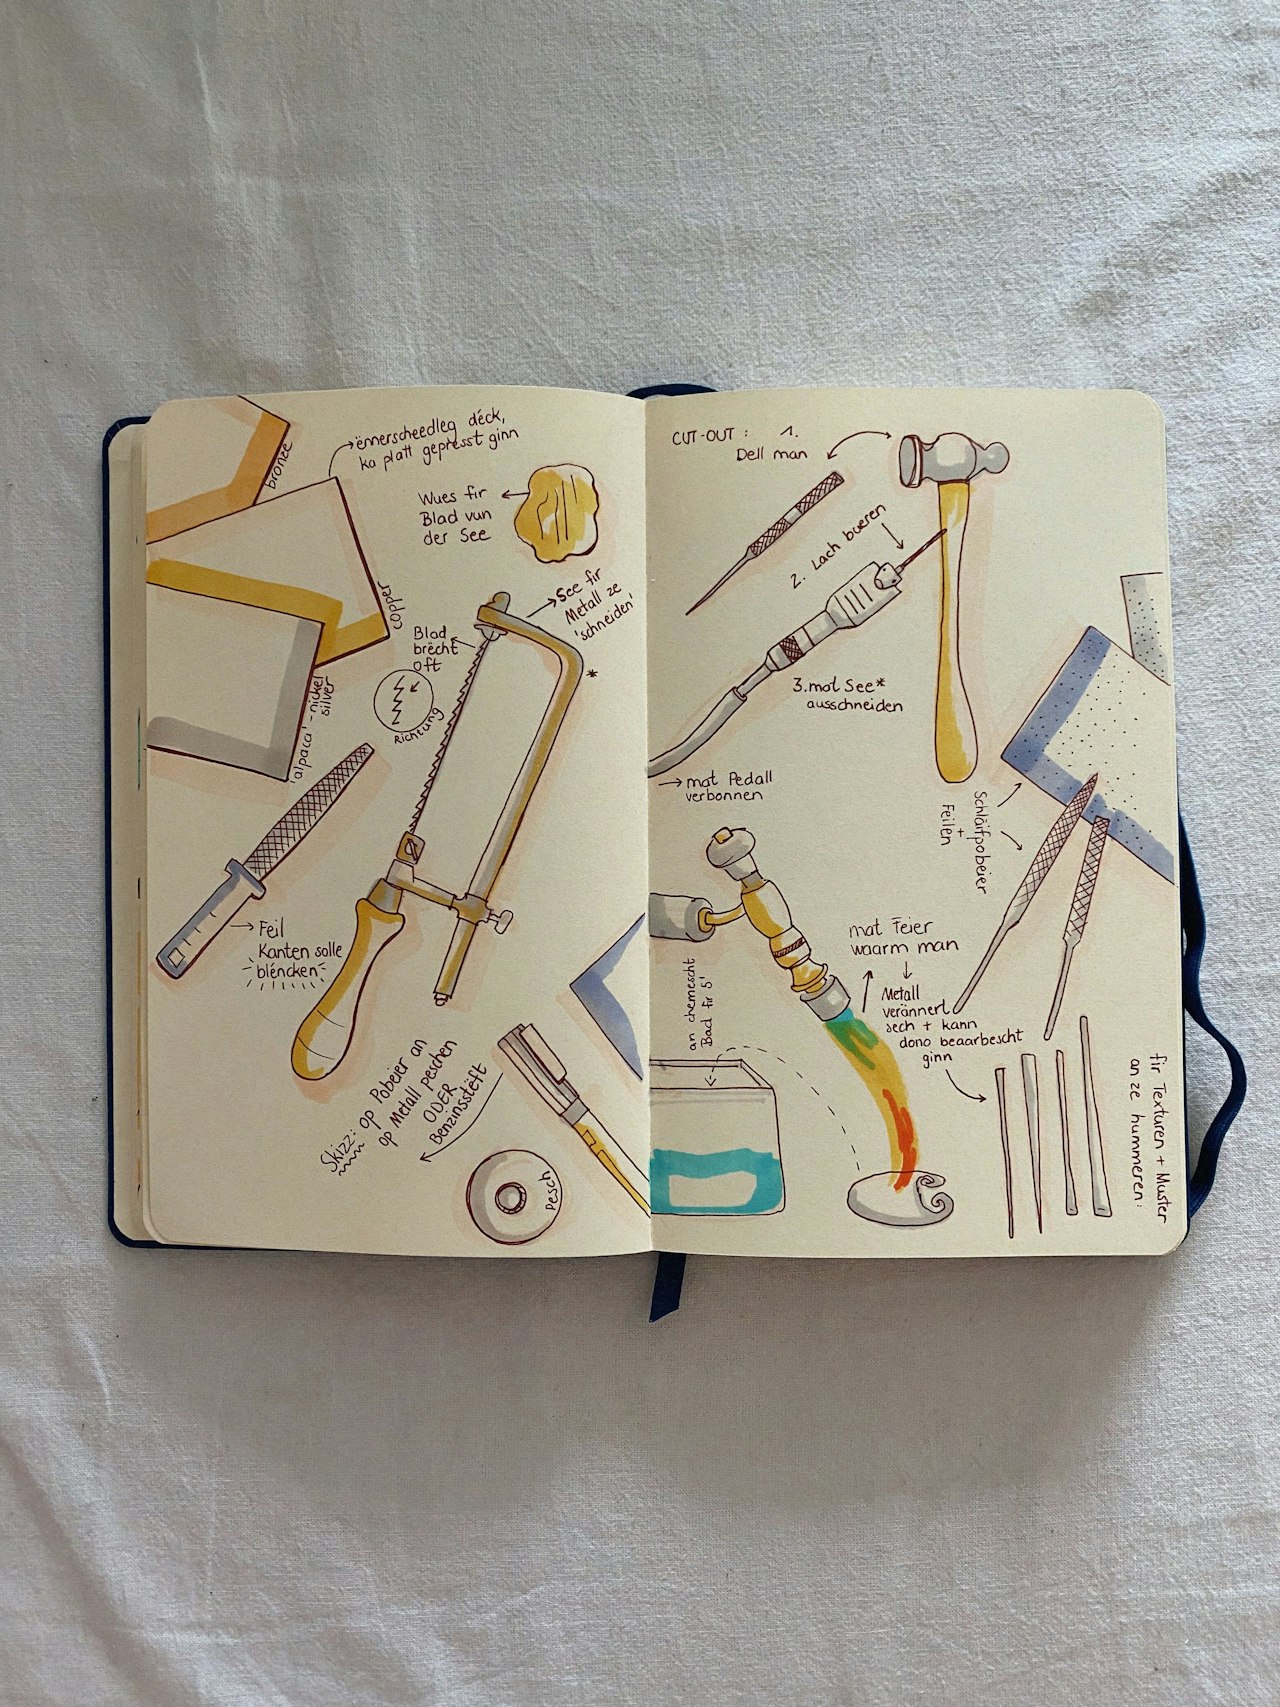 bronze
ënnerscheedleg déck,
ka platt gepresst ginn
Wues fir
Blad vun
der See
copper
See fir
Metall ze
'schneiden'
*
Blad
brécht
oft
Richtung
'alpaca' - nickel
silver
Feil
Kanten solle
bléncken
Skizz: op Pobeier an
op Metall peschen
ODER
Benzinsstëft
Pesch
CUT-OUT : 1.
Dell man
2. Lach bueren
3. mat See*
ausschneiden
mat Pedall
verbonnen
Schläifpobeier
+
Feilen
mat Feier
waarm man
Metall
verännert
sech + kann
dono beaarbescht
ginn
an chemescht
Bad fir 5'
fir Texturen + Muster
an ze hummeren: